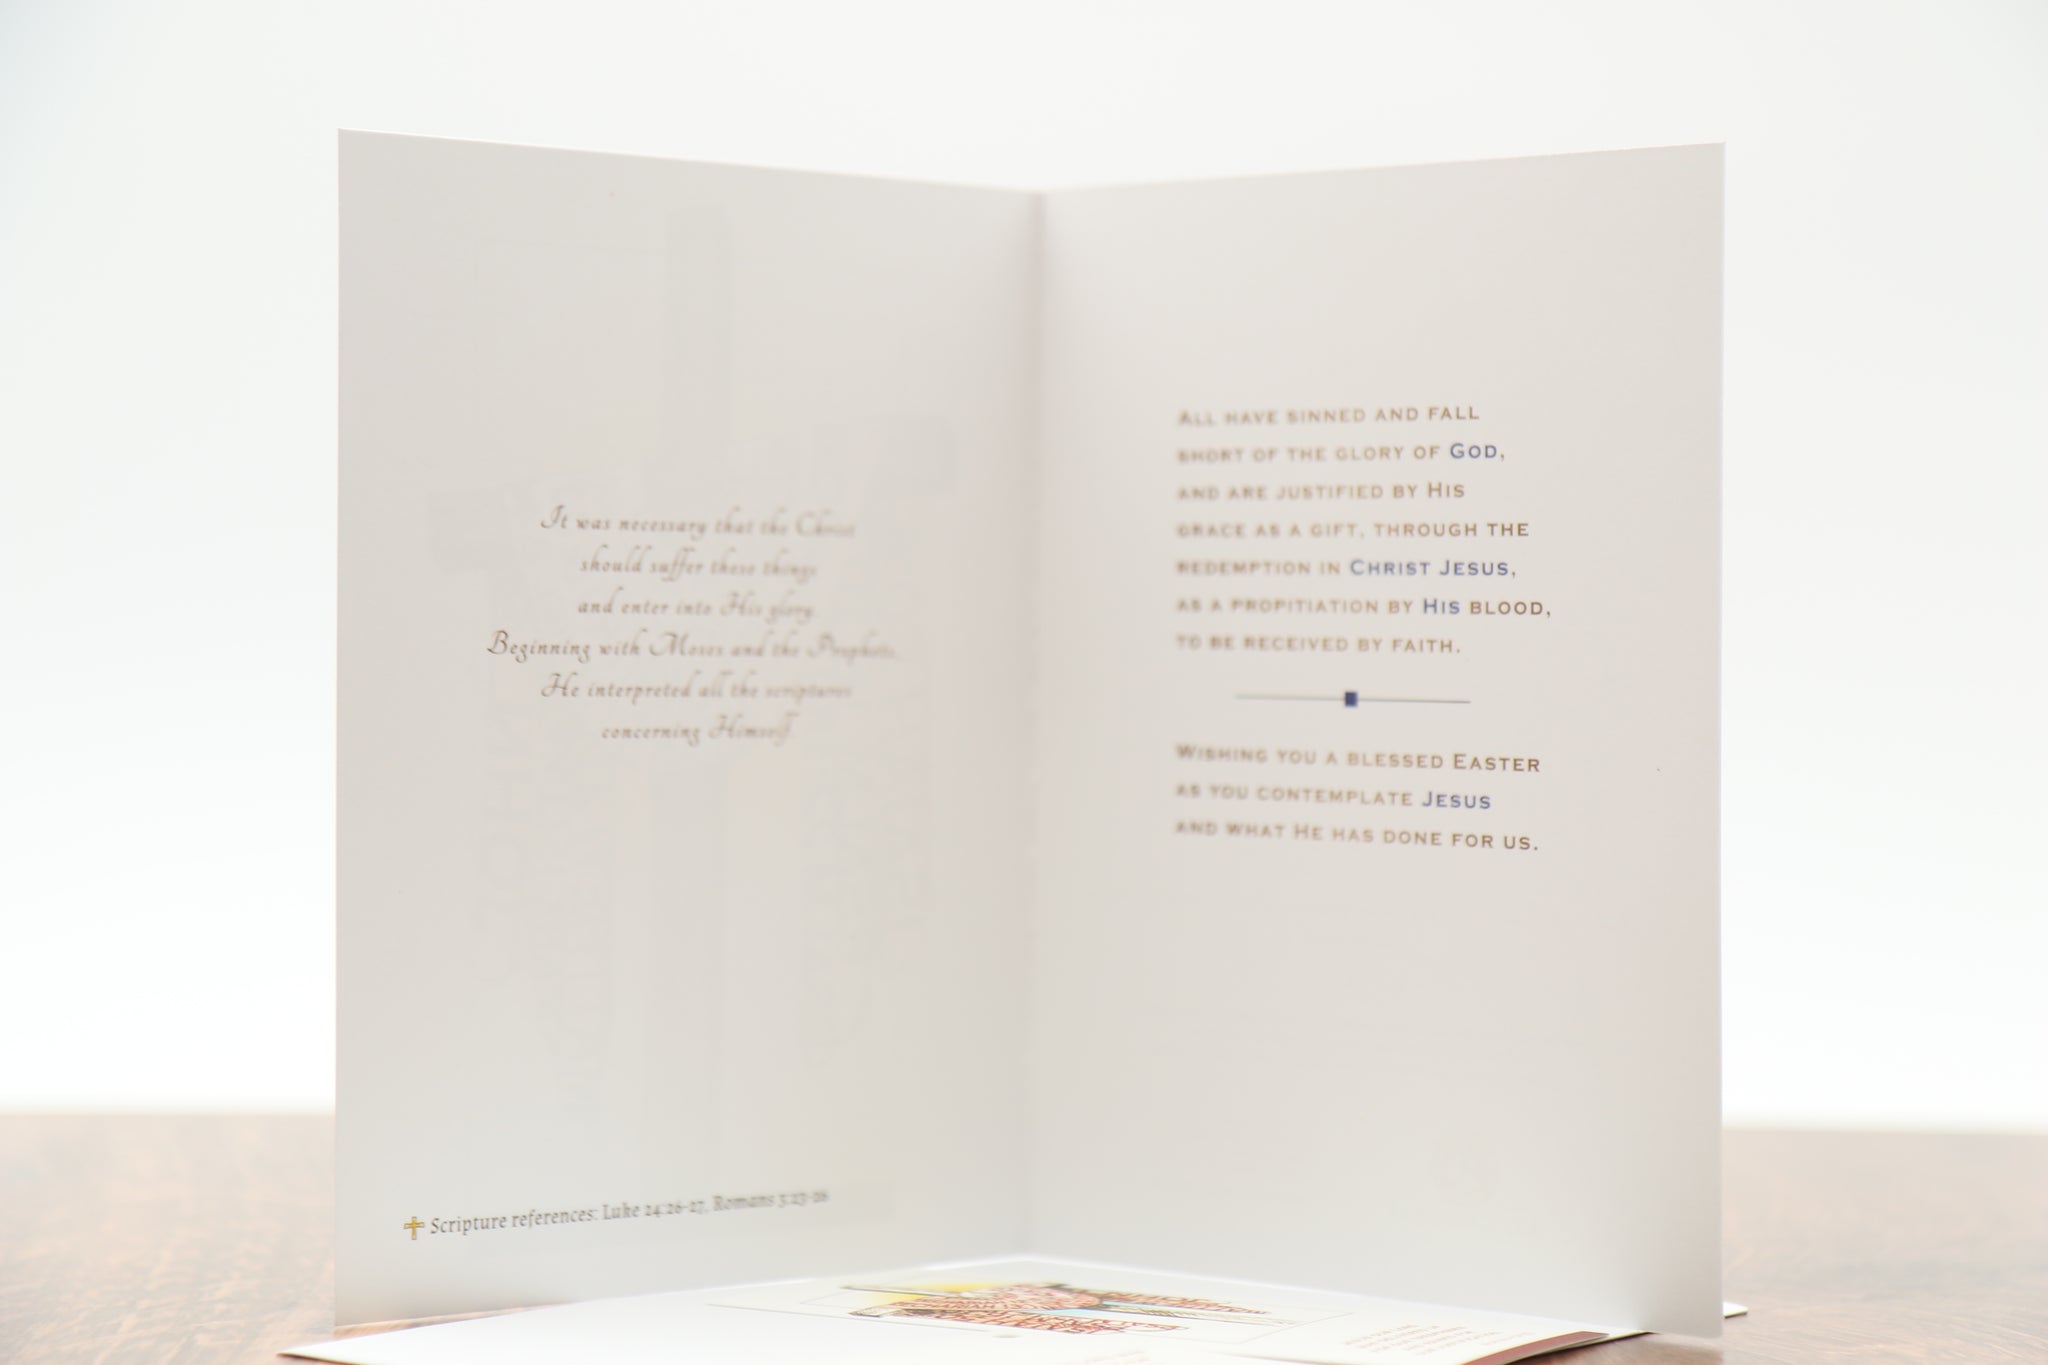 It was necessary that the Christ
should suffer these things
and enter into His glory.
Beginning with Moses and the Prophets,
He interpreted all the scriptures
concerning Himself.
Scripture references: Luke 24:26-27, Romans 3:23-26
ALL HAVE SINNED AND FALL
SHORT OF THE GLORY OF GOD,
AND ARE JUSTIFIED BY HIS
GRACE AS A GIFT, THROUGH THE
REDEMPTION IN CHRIST JESUS,
AS A PROPITIATION BY HIS BLOOD,
TO BE RECEIVED BY FAITH.
WISHING YOU A BLESSED EASTER
AS YOU CONTEMPLATE JESUS
AND WHAT HE HAS DONE FOR US.